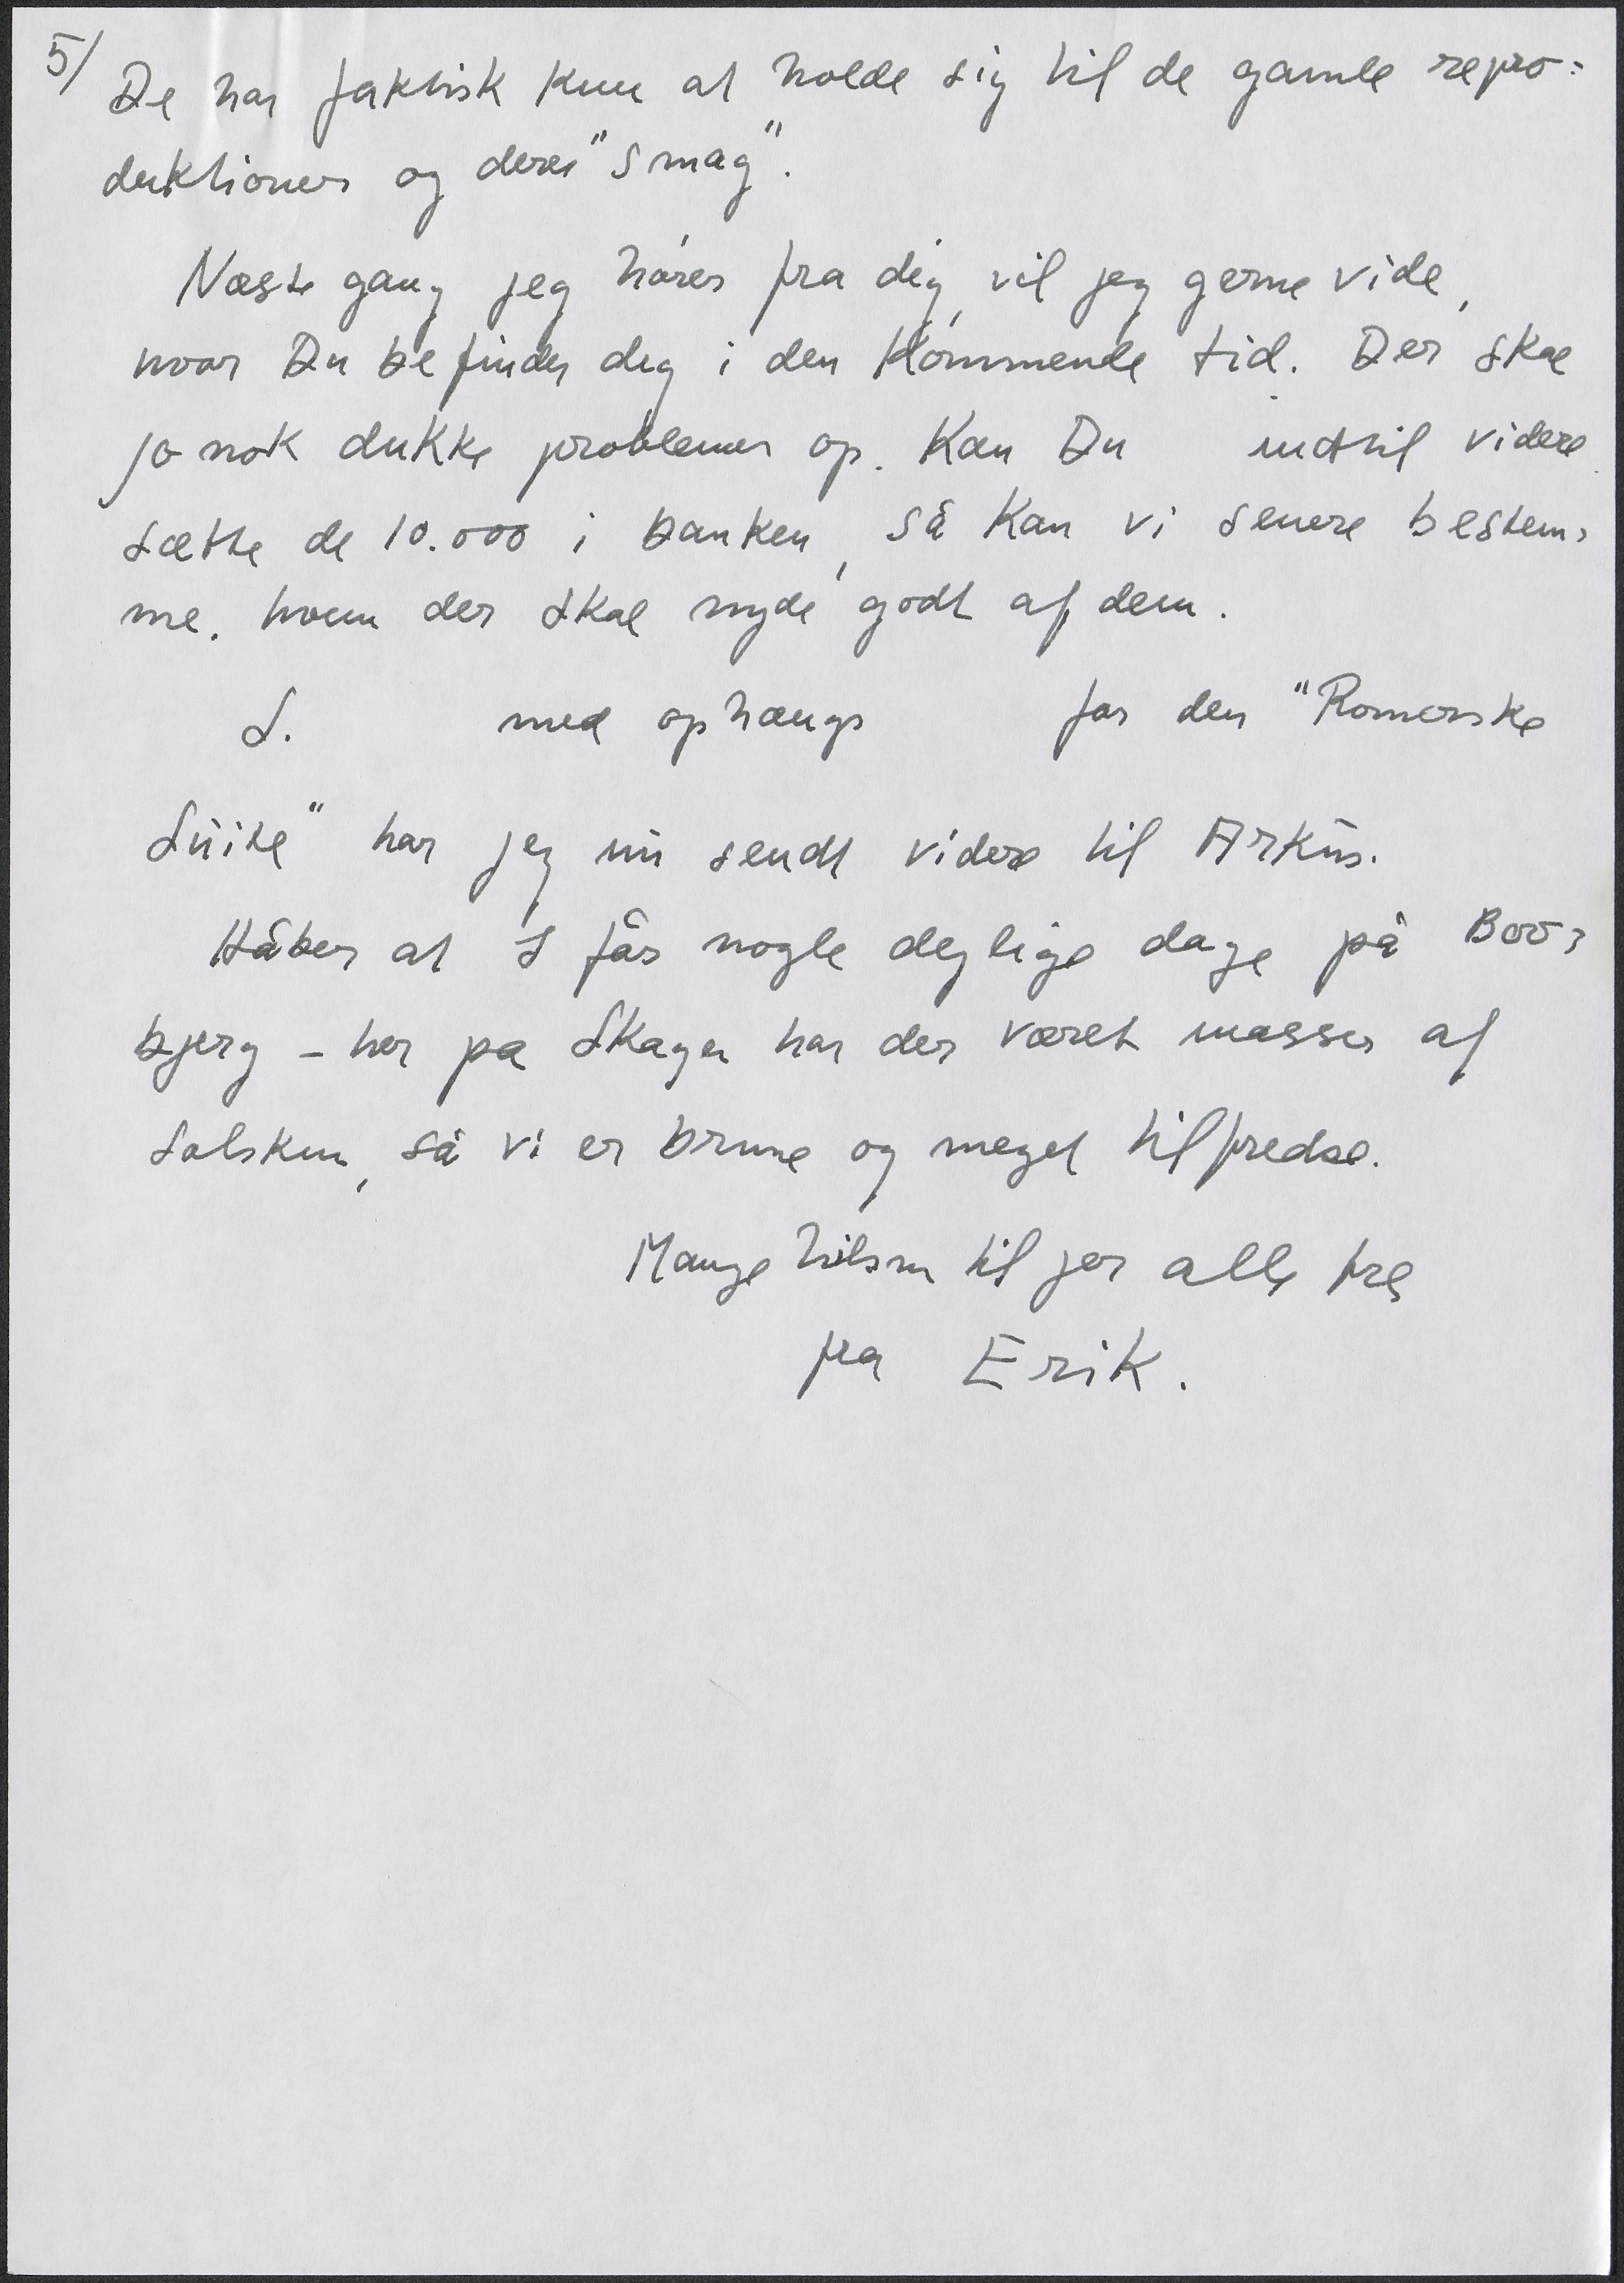 5/ De har faktisk kun at holde sig til de gamle repro=
duktioner og deres "smag".
Næste gang jeg hører fra dig, vil jeg gerne vide,
hvor Du befinder dig i den kommende tid. Der skal
jo nok dukke problemer op. Kan Du indtil videre
sætte de 10.000 i banken, så kan vi senere bestem=
me, hvem der skal nyde godt af dem.
S. med ophængs for den "Romerske
Suite" har jeg nu sendt videre til Arkus.
Håber at I får nogle dejlige dage på Bov=
bjerg - her på Skagen har der været masser af
solskin, så vi er brune og meget tilfredse.
Mange hilsner til jer alle tre
fra Erik.